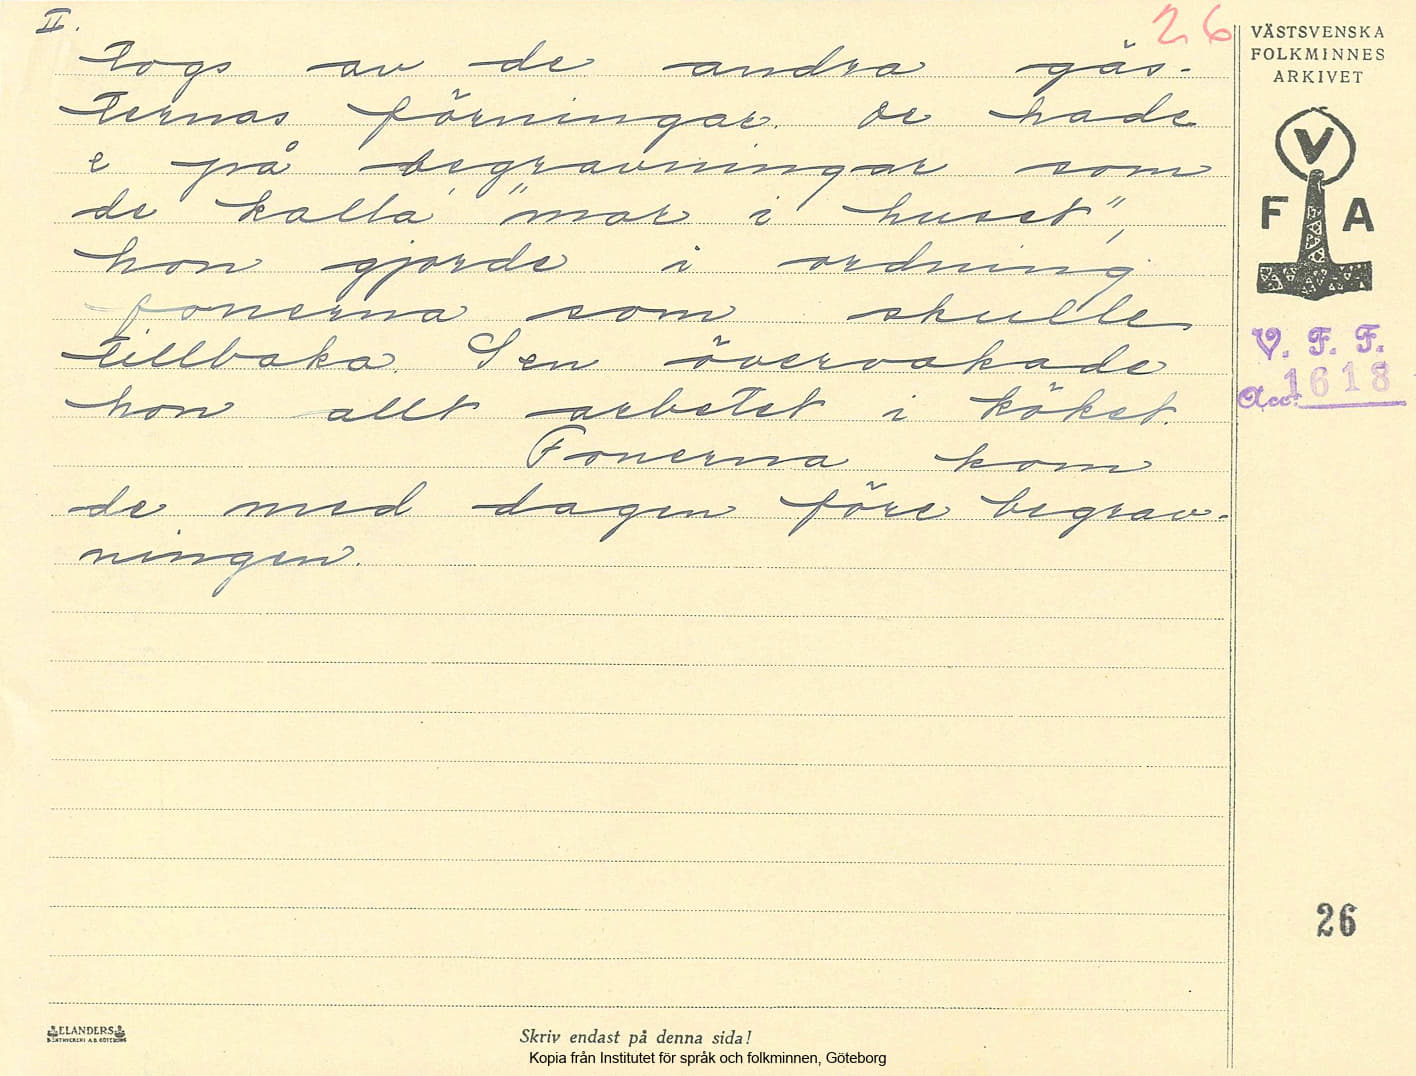 II.
26
togs av de andra gäs-
ternas förningar. De hade
e på begravningar som
de kalla "mor i huset",
hon gjorde i ordning
fonerna som skulle
tillbaka. Sen övervakade
hon allt arbetet i köket.
Fonerna kom
de med dagen före begrav-
ningen.
VÄSTSVENSKA
FOLKMINNES
ARKIVET
V
F A
V. F. F.
Acc. 1618
26
ELANDERS
BOKTRYCKERI A.B. GÖTEBORG
Skriv endast på denna sida!
Kopia från Institutet för språk och folkminnen, Göteborg